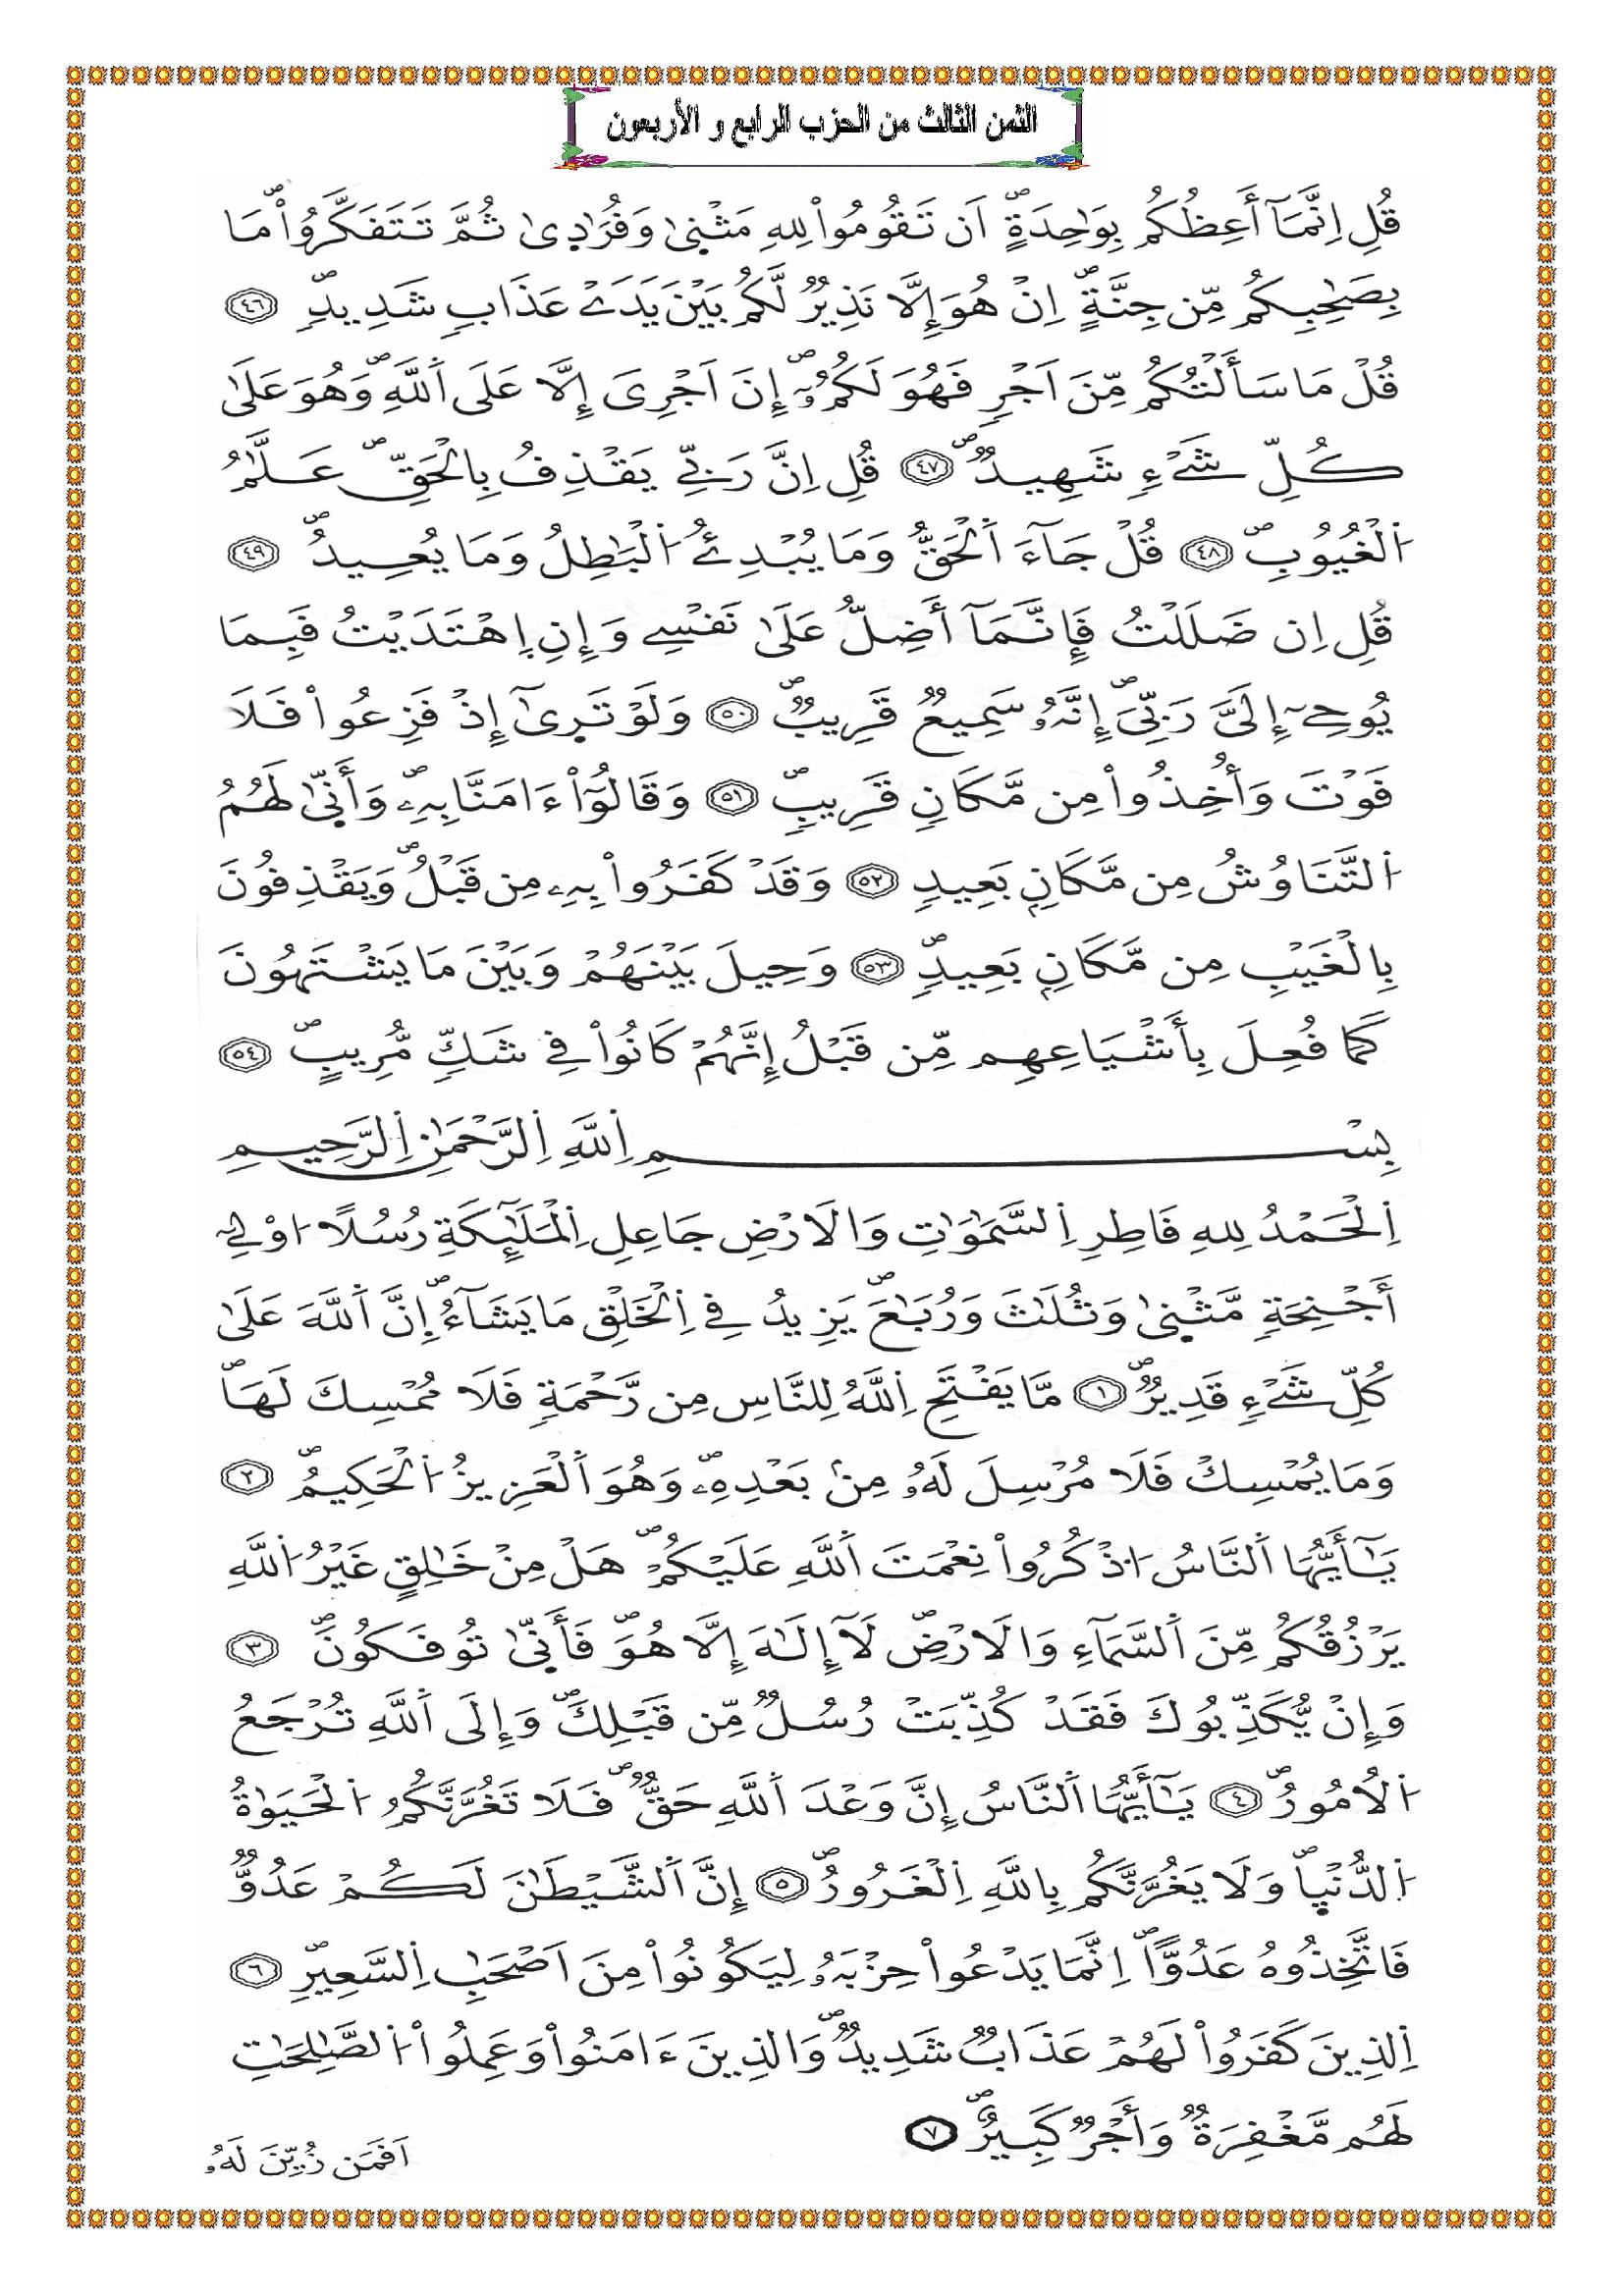 الثمن الثالث من الحزب الرابع و الأربعون
قُلِ اِنَّمَآ أَعِظُكُم بِوَٰحِدَةٍۖ اَن تَقُومُواْ لِلهِ مَثْنۭيٰ وَفُرَٰدۭيٰ ثُمَّ تَتَفَكَّرُواْۖ مَا
بِصَٰحِبِكُم مِّن جِنَّةٍۖ اِنْ هُوَ إِلَّا نَذِيرٞ لَّكُم بَيْنَ يَدَےْ عَذَابٖ شَدِيدٖۖ ٤٦
قُلْ مَا سَأَلْتُكُم مِّنَ اَجْرٖ فَهُوَ لَكُمُۥٓۖ إِنَ اَجْرِىَ إِلَّا عَلَى اَ۬للَّهِۖ وَهُوَ عَلَىٰ
كُلِّ شَےْءٖ شَهِيدٞۖ ٤٧ قُلِ اِنَّ رَبِّے يَقْذِفُ بِالْحَقِّۖ عَلَّٰمُ
اُ۬لْغُيُوبِۖ ٤٨ قُلْ جَآءَ اَ۬لْحَقُّ وَمَا يُبْدِئُ اُ۬لْبَٰطِلُ وَمَا يُعِيدُۖ ٤٩
قُلِ اِن ضَلَلْتُ فَإِنَّمَآ أَضِلُّ عَلَىٰ نَفْسِے وَإِنِ اِ۪هْتَدَيْتُ فَبِمَا
يُوحِےٓ إِلَىَّ رَبِّىَۖ إِنَّهُۥ سَمِيعٞ قَرِيبٞۖ ٥٠ وَلَوْ تَرۭىٰٓ إِذْ فَزِعُواْ فَلَا
فَوْتَ وَأُخِذُواْ مِن مَّكَانٖ قَرِيبٖۖ ٥١ وَقَالُوٓاْ ءَامَنَّا بِهِۦۖ وَأَنّۭيٰ لَهُمُ
اُ۬لتَّنَاوُشُ مِن مَّكَانِۢ بَعِيدٖ ٥٢ وَقَدْ كَفَرُواْ بِهِۦ مِن قَبْلُۖ وَيَقْذِفُونَ
بِالْغَيْبِ مِن مَّكَانِۢ بَعِيدٖۖ ٥٣ وَحِيلَ بَيْنَهُمْ وَبَيْنَ مَا يَشْتَهُونَ
كَمَا فُعِلَ بِأَشْيَاعِهِم مِّن قَبْلُ إِنَّهُمْ كَانُواْ فِے شَكّٖ مُّرِيبٍۖ ٥٤
بِسْمِ اِ۬للَّهِ اِ۬لرَّحْمَٰنِ اِ۬لرَّحِيمِ
اِ۬لْحَمْدُ لِلهِ فَاطِرِ اِ۬لسَّمَٰوَٰتِ وَالَارْضِ جَاعِلِ اِ۬لْمَلَٰٓئِكَةِ رُسُلًا ا۟وْلِےٓ
أَجْنِحَةٖ مَّثْنۭيٰ وَثُلَٰثَ وَرُبَٰعَۖ يَزِيدُ فِے اِ۬لْخَلْقِ مَا يَشَآءُۖ اِ۪نَّ اَ۬للَّهَ عَلَىٰ
كُلِّ شَےْءٖ قَدِيرٞۖ ١ مَّا يَفْتَحِ اِ۬للَّهُ لِلنَّاسِ مِن رَّحْمَةٖ فَلَا مُمْسِكَ لَهَاۖ
وَمَا يُمْسِكْ فَلَا مُرْسِلَ لَهُۥ مِنۢ بَعْدِهِۦۖ وَهُوَ اَ۬لْعَزِيزُ اُ۬لْحَكِيمُۖ ٢
يَٰٓأَيُّهَا اَ۬لنَّاسُ اُ۟ذْكُرُواْ نِعْمَتَ اَ۬للَّهِ عَلَيْكُمْۖ هَلْ مِنْ خَٰلِقٍ غَيْرُ اُ۬للَّهِ
يَرْزُقُكُم مِّنَ اَ۬لسَّمَآءِ وَالَارْضِۖ لَآ إِلَٰهَ إِلَّا هُوَۖ فَأَنّۭيٰ تُوفَكُونَۖ ٣
وَإِنْ يُّكَذِّبُوكَ فَقَدْ كُذِّبَتْ رُسُلٞ مِّن قَبْلِكَۖ وَإِلَى اَ۬للَّهِ تُرْجَعُ
اُ۬لُامُورُۖ ٤ يَٰٓأَيُّهَا اَ۬لنَّاسُ إِنَّ وَعْدَ اَ۬للَّهِ حَقّٞۖ فَلَا تَغُرَّنَّكُمُ اُ۬لْحَيَوٰةُ
اُ۬لدُّنْيۭاۖ وَلَا يَغُرَّنَّكُم بِاللَّهِ اِ۬لْغَرُورُۖ ٥ إِنَّ اَ۬لشَّيْطَٰنَ لَكُمْ عَدُوّٞ
فَاتَّخِذُوهُ عَدُوًّاۖ اِنَّمَا يَدْعُواْ حِزْبَهُۥ لِيَكُونُواْ مِنَ اَصْحَٰبِ اِ۬لسَّعِيرِۖ ٦
اِ۬لذِينَ كَفَرُواْ لَهُمْ عَذَابٞ شَدِيدٞۖ وَالذِينَ ءَامَنُواْ وَعَمِلُواْ اُ۬لصَّٰلِحَٰتِ
لَهُم مَّغْفِرَةٞ وَأَجْرٞ كَبِيرٌۖ ٧
اَفَمَن زُيِّنَ لَهُۥ